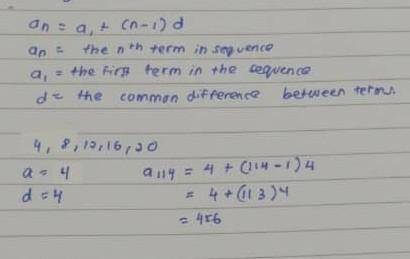 an = a, + (n-1) d
an = the nth term in sequence
a, = the first term in the sequence
d = the common difference between terms.
4, 8, 12, 16, 20
a = 4 a 114 = 4 + (114 - 1) 4
d = 4 = 4 + (113) 4
= 456